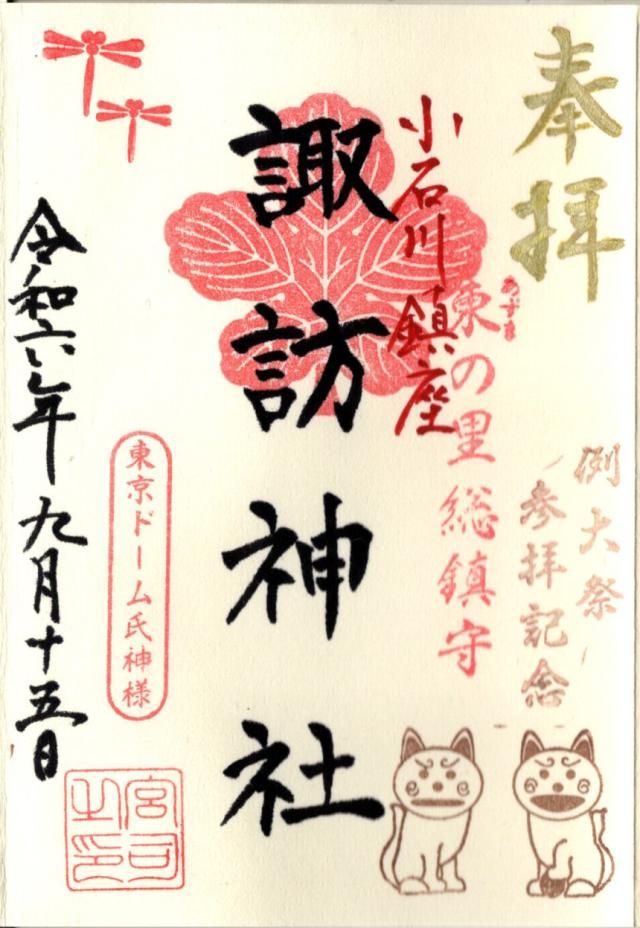 奉拝
例大祭
参拝記念
あずま
東の里総鎮守
小石川鎮座
諏訪神社
東京ドーム氏神様
宮司之印
令和六年九月十五日